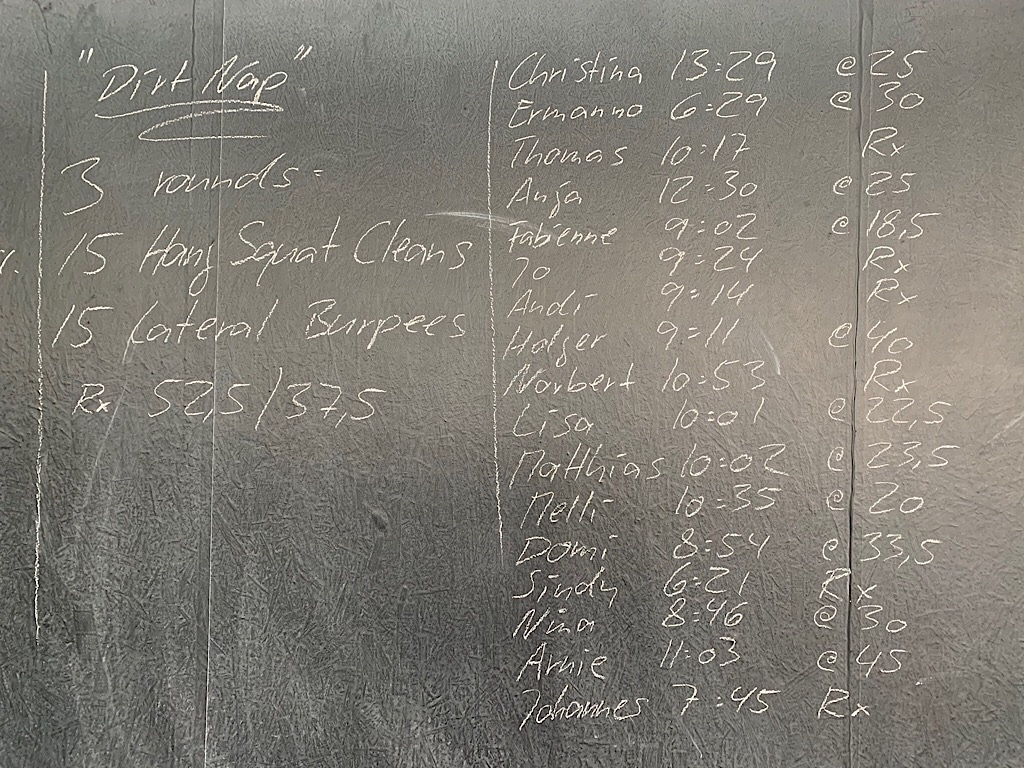 "Dirt Nap"
3 rounds:
15 Hang Squat Cleans
15 Lateral Burpees
Rx 52,5/37,5
Christina 13:29 @ 25
Ermanno 6:29 @ 30
Thomas 10:17 Rx
Anja 12:30 @ 25
Fabienne 9:02 @ 18,5
Jo 9:24 Rx
Andi 9:14 Rx
Holger 9:11 @ 40
Norbert 10:53 Rx
Lisa 10:01 @ 22,5
Matthias 10:02 @ 23,5
Melli 10:35 @ 20
Domi 8:54 @ 33,5
Sindy 6:21 Rx
Nina 8:46 @ 30
Arnie 11:03 @ 45
Johannes 7:45 Rx